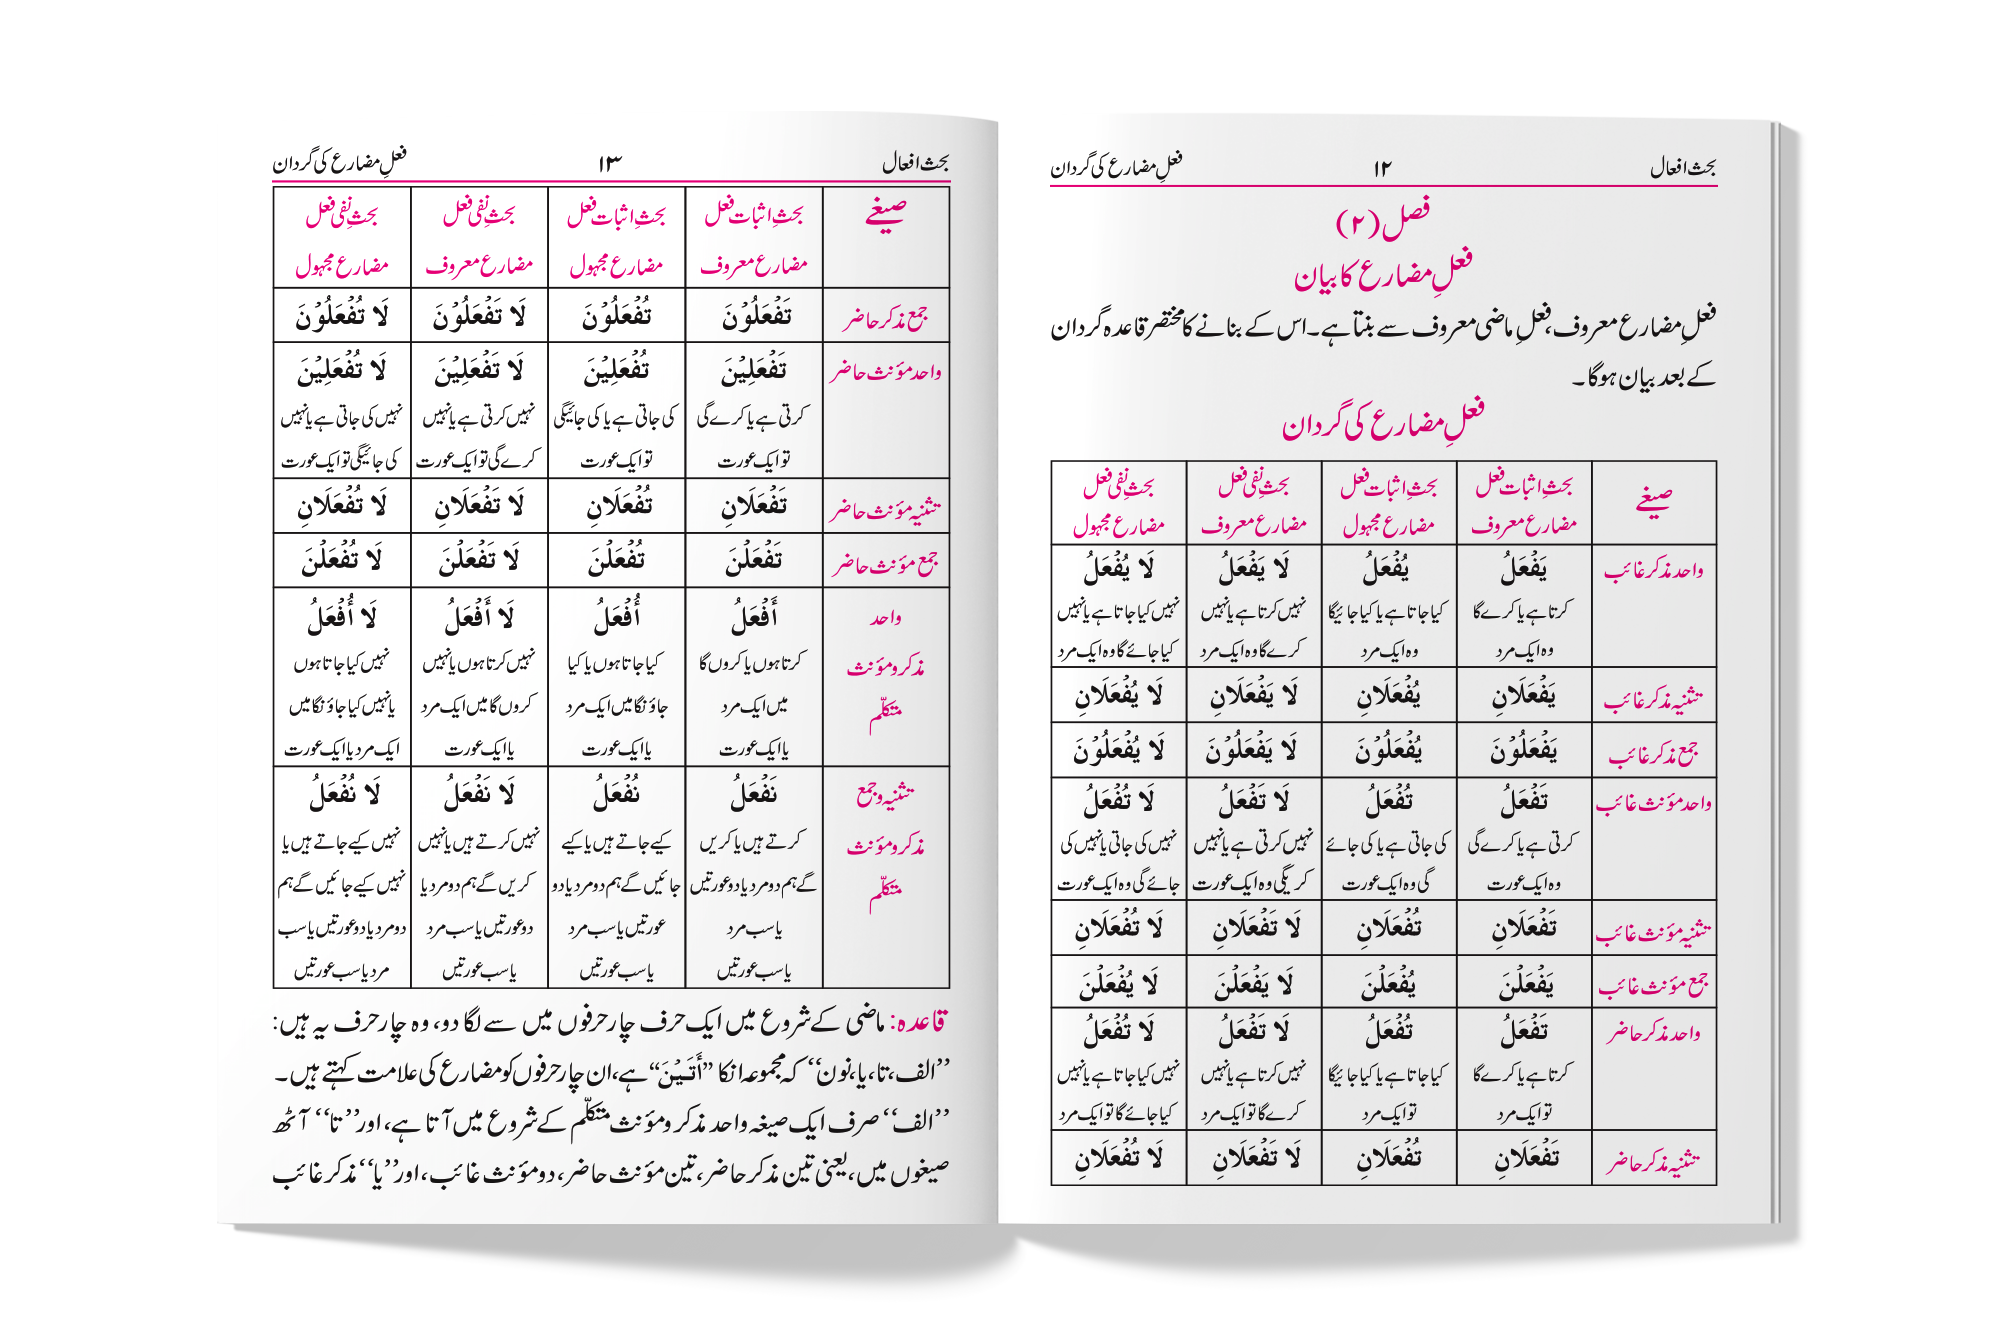 بحث افعال ۱۲ فعلِ مضارع کی گردان
فصل (۲)
فعلِ مضارع کا بیان
فعلِ مضارع معروف، فعلِ ماضی معروف سے بنتا ہے۔ اس کے بنانے کا مختصر قاعدہ گردان
کے بعد بیان ہوگا۔
فعلِ مضارع کی گردان
صیغے بحثِ اثبات فعل بحثِ اثبات فعل بحثِ نفی فعل بحثِ نفی فعل
مضارع معروف مضارع مجہول مضارع معروف مضارع مجہول
واحد مذکر غائب يَفْعَلُ يُفْعَلُ لَا يَفْعَلُ لَا يُفْعَلُ
کرتا ہے یا کرے گا کیا جاتا ہے یا کیا جائیگا نہیں کرتا ہے یا نہیں نہیں کیا جاتا ہے یا نہیں
وہ ایک مرد وہ ایک مرد کرے گا وہ ایک مرد کیا جائے گا وہ ایک مرد
تثنیہ مذکر غائب يَفْعَلَانِ يُفْعَلَانِ لَا يَفْعَلَانِ لَا يُفْعَلَانِ
جمع مذکر غائب يَفْعَلُوْنَ يُفْعَلُوْنَ لَا يَفْعَلُوْنَ لَا يُفْعَلُوْنَ
واحد مؤنث غائب تَفْعَلُ تُفْعَلُ لَا تَفْعَلُ لَا تُفْعَلُ
کرتی ہے یا کرے گی کی جاتی ہے یا کی جائے نہیں کرتی ہے یا نہیں نہیں کی جاتی یا نہیں کی
وہ ایک عورت گی وہ ایک عورت کریگی وہ ایک عورت جائے گی وہ ایک عورت
تثنیہ مؤنث غائب تَفْعَلَانِ تُفْعَلَانِ لَا تَفْعَلَانِ لَا تُفْعَلَانِ
جمع مؤنث غائب يَفْعَلْنَ يُفْعَلْنَ لَا يَفْعَلْنَ لَا يُفْعَلْنَ
واحد مذکر حاضر تَفْعَلُ تُفْعَلُ لَا تَفْعَلُ لَا تُفْعَلُ
کرتا ہے یا کرے گا کیا جاتا ہے یا کیا جائیگا نہیں کرتا ہے یا نہیں نہیں کیا جاتا ہے یا نہیں
تو ایک مرد تو ایک مرد کرے گا تو ایک مرد کیا جائے گا تو ایک مرد
تثنیہ مذکر حاضر تَفْعَلَانِ تُفْعَلَانِ لَا تَفْعَلَانِ لَا تُفْعَلَانِ
بحث افعال ۱۳ فعلِ مضارع کی گردان
صیغے بحثِ اثبات فعل بحثِ اثبات فعل بحثِ نفی فعل بحثِ نفی فعل
مضارع معروف مضارع مجہول مضارع معروف مضارع مجہول
جمع مذکر حاضر تَفْعَلُوْنَ تُفْعَلُوْنَ لَا تَفْعَلُوْنَ لَا تُفْعَلُوْنَ
واحد مؤنث حاضر تَفْعَلِيْنَ تُفْعَلِيْنَ لَا تَفْعَلِيْنَ لَا تُفْعَلِيْنَ
کرتی ہے یا کرے گی کی جاتی ہے یا کی جائیگی نہیں کرتی ہے یا نہیں نہیں کی جاتی ہے یا نہیں
تو ایک عورت تو ایک عورت کرے گی تو ایک عورت کی جائیگی تو ایک عورت
تثنیہ مؤنث حاضر تَفْعَلَانِ تُفْعَلَانِ لَا تَفْعَلَانِ لَا تُفْعَلَانِ
جمع مؤنث حاضر تَفْعَلْنَ تُفْعَلْنَ لَا تَفْعَلْنَ لَا تُفْعَلْنَ
واحد أَفْعَلُ أُفْعَلُ لَا أَفْعَلُ لَا أُفْعَلُ
مذکر ومؤنث کرتا ہوں یا کروں گا کیا جاتا ہوں یا کیا نہیں کرتا ہوں یا نہیں نہیں کیا جاتا ہوں
متکلّم میں ایک مرد جاؤنگا میں ایک مرد کروں گا میں ایک مرد یا نہیں کیا جاؤنگا میں
یا ایک عورت یا ایک عورت یا ایک عورت ایک مرد یا ایک عورت
تثنیہ وجمع نَفْعَلُ نُفْعَلُ لَا نَفْعَلُ لَا نُفْعَلُ
مذکر ومؤنث کرتے ہیں یا کریں کیے جاتے ہیں یا کیے نہیں کرتے ہیں یا نہیں نہیں کیے جاتے ہیں یا
متکلّم گے ہم دو مرد یا دو عورتیں جائیں گے ہم دو مرد یا دو کریں گے ہم دو مرد یا نہیں کیے جائیں گے ہم
یا سب مرد عورتیں یا سب مرد دو عورتیں یا سب مرد دو مرد یا دو عورتیں یا سب
یا سب عورتیں یا سب عورتیں یا سب عورتیں مرد یا سب عورتیں
قاعدہ: ماضی کے شروع میں ایک حرف چار حرفوں میں سے لگا دو، وہ چار حرف یہ ہیں:
’’الف، تا، یا، نون‘‘ کہ مجموعہ انکا ’’أَتَيْنَ‘‘ ہے، ان چار حرفوں کو مضارع کی علامت کہتے ہیں۔
’’الف‘‘ صرف ایک صیغہ واحد مذکر ومؤنث متکلّم کے شروع میں آتا ہے، اور ’’تا‘‘ آٹھ
صیغوں میں، یعنی تین مذکر حاضر، تین مؤنث حاضر، دو مؤنث غائب، اور ’’یا‘‘ مذکر غائب